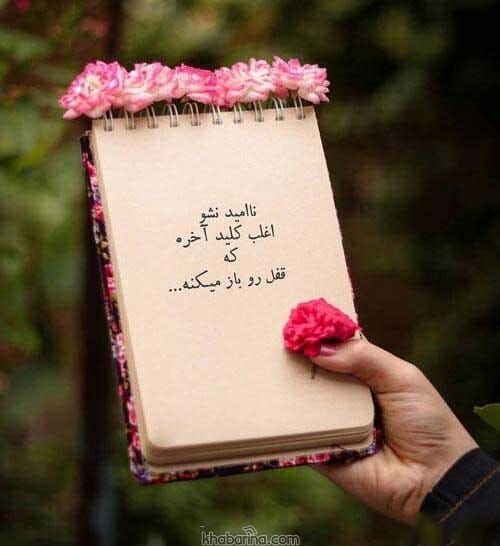 ناامید نشو
اغلب کلید آخره
که
قفل رو باز میکنه...
khabarina.com